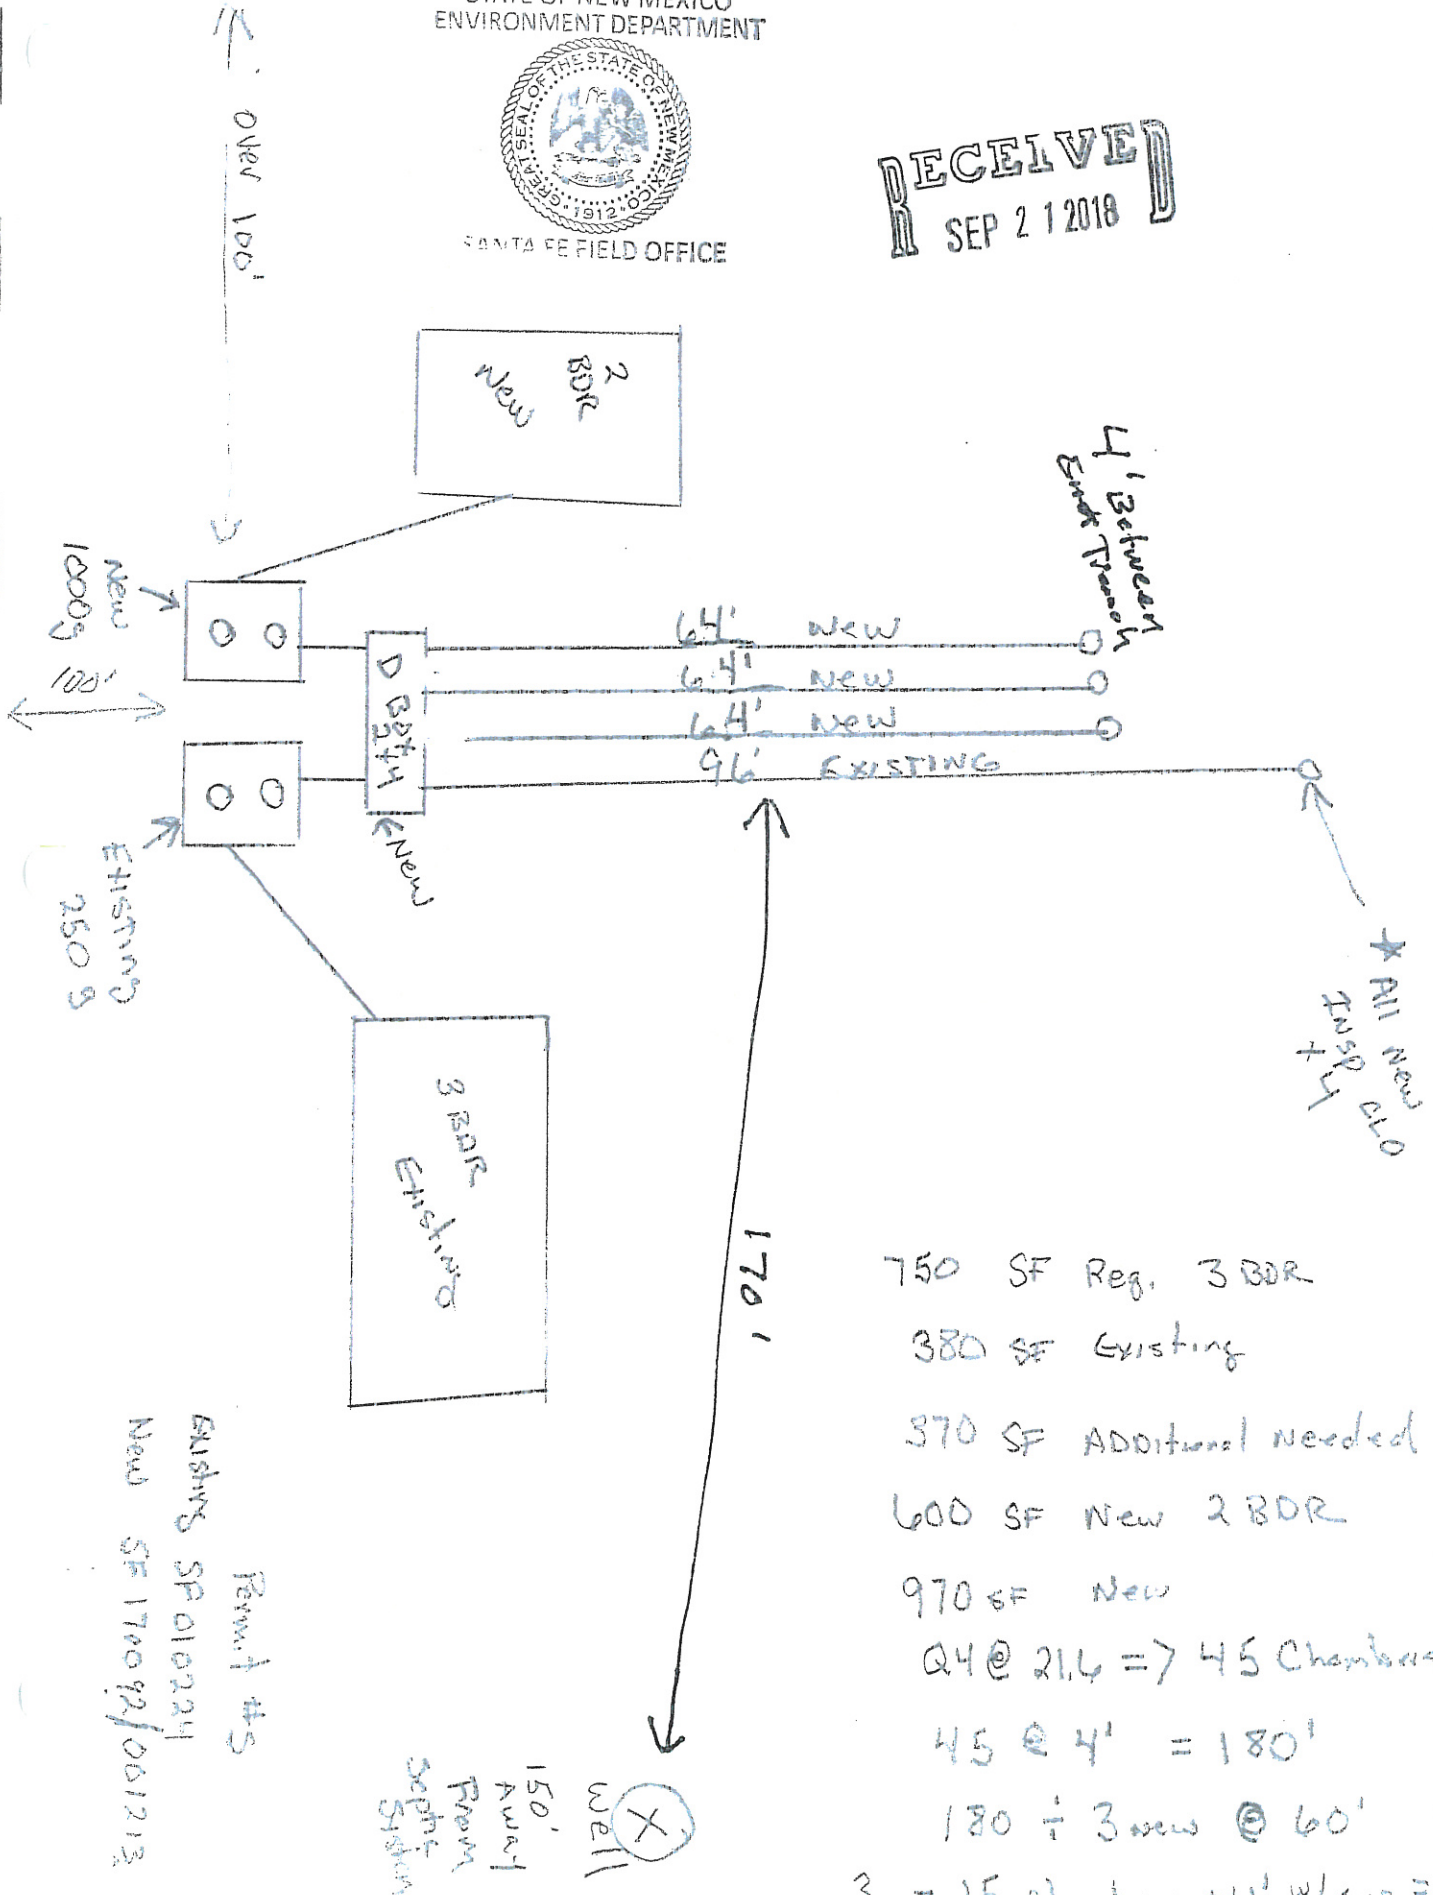 STATE OF NEW MEXICO
ENVIRONMENT DEPARTMENT
GREAT SEAL OF THE STATE OF NEW MEXICO
1912
SANTA FE FIELD OFFICE
RECEIVED
SEP 21 2018
over 100'
2
BDR
New
4' Between
Trench
New
1000g
100'
D Box
64' New
64' New
64' New
96' EXISTING
← New
Existing
250 g
* All New
INSP CLO
x 4
3 BDR
Existing
170'
750 SF Req. 3 BDR
380 SF Existing
370 SF ADDitional Needed
600 SF New 2 BDR
970 SF New
Q4 @ 21.6 => 45 Chambers
45 @ 4' = 180'
180 ÷ 3 new @ 60'
Permit #s
Existing SF010224
New SF170092/001213
X
Well
150'
Away
From
Septic
System